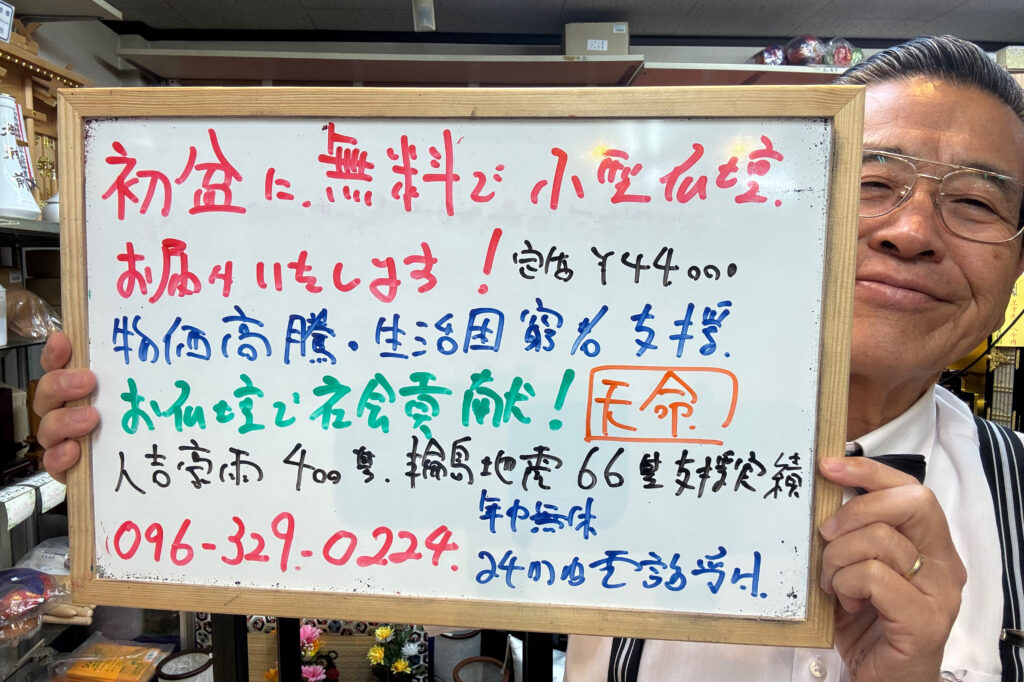 初盆に無料で小型仏壇
お届けいたします！ 定価￥44000
物価高騰・生活困窮者支援
お仏壇で社会貢献！ 天命
人吉豪雨400基、輪島地震66基支援実績
年中無休
096-329-0224 24時間電話受付